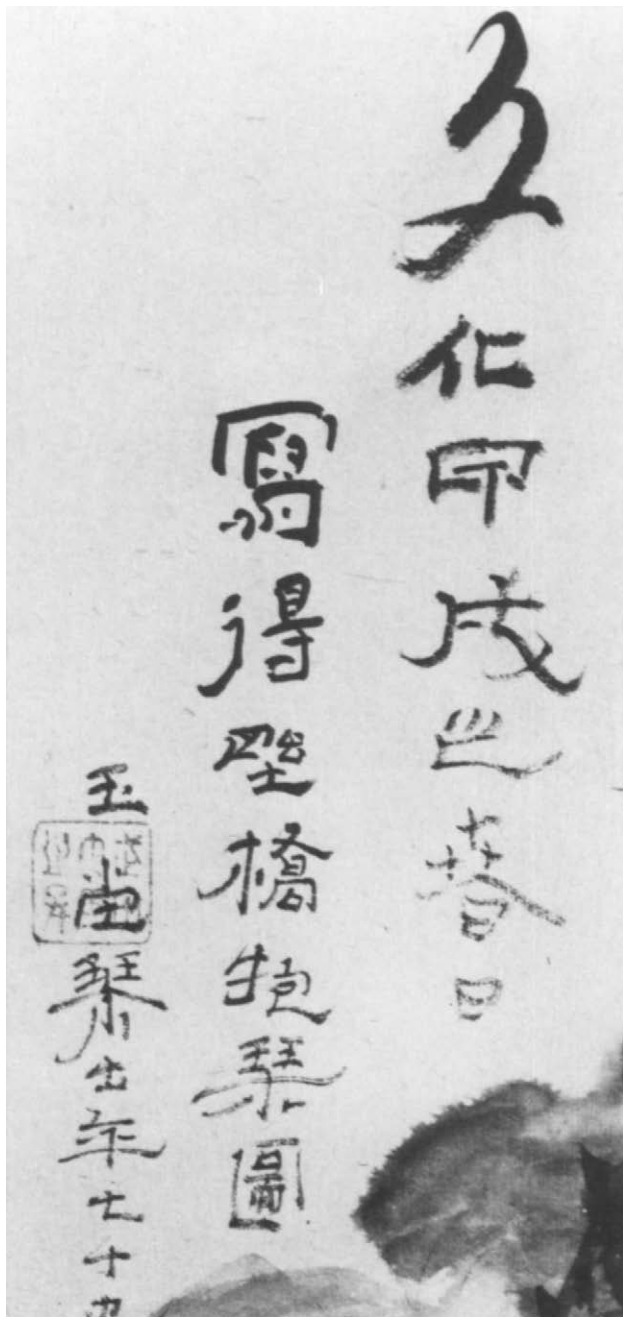 文化甲戌之春日
寫得野橋抱琴圖
玉堂琴士年七十